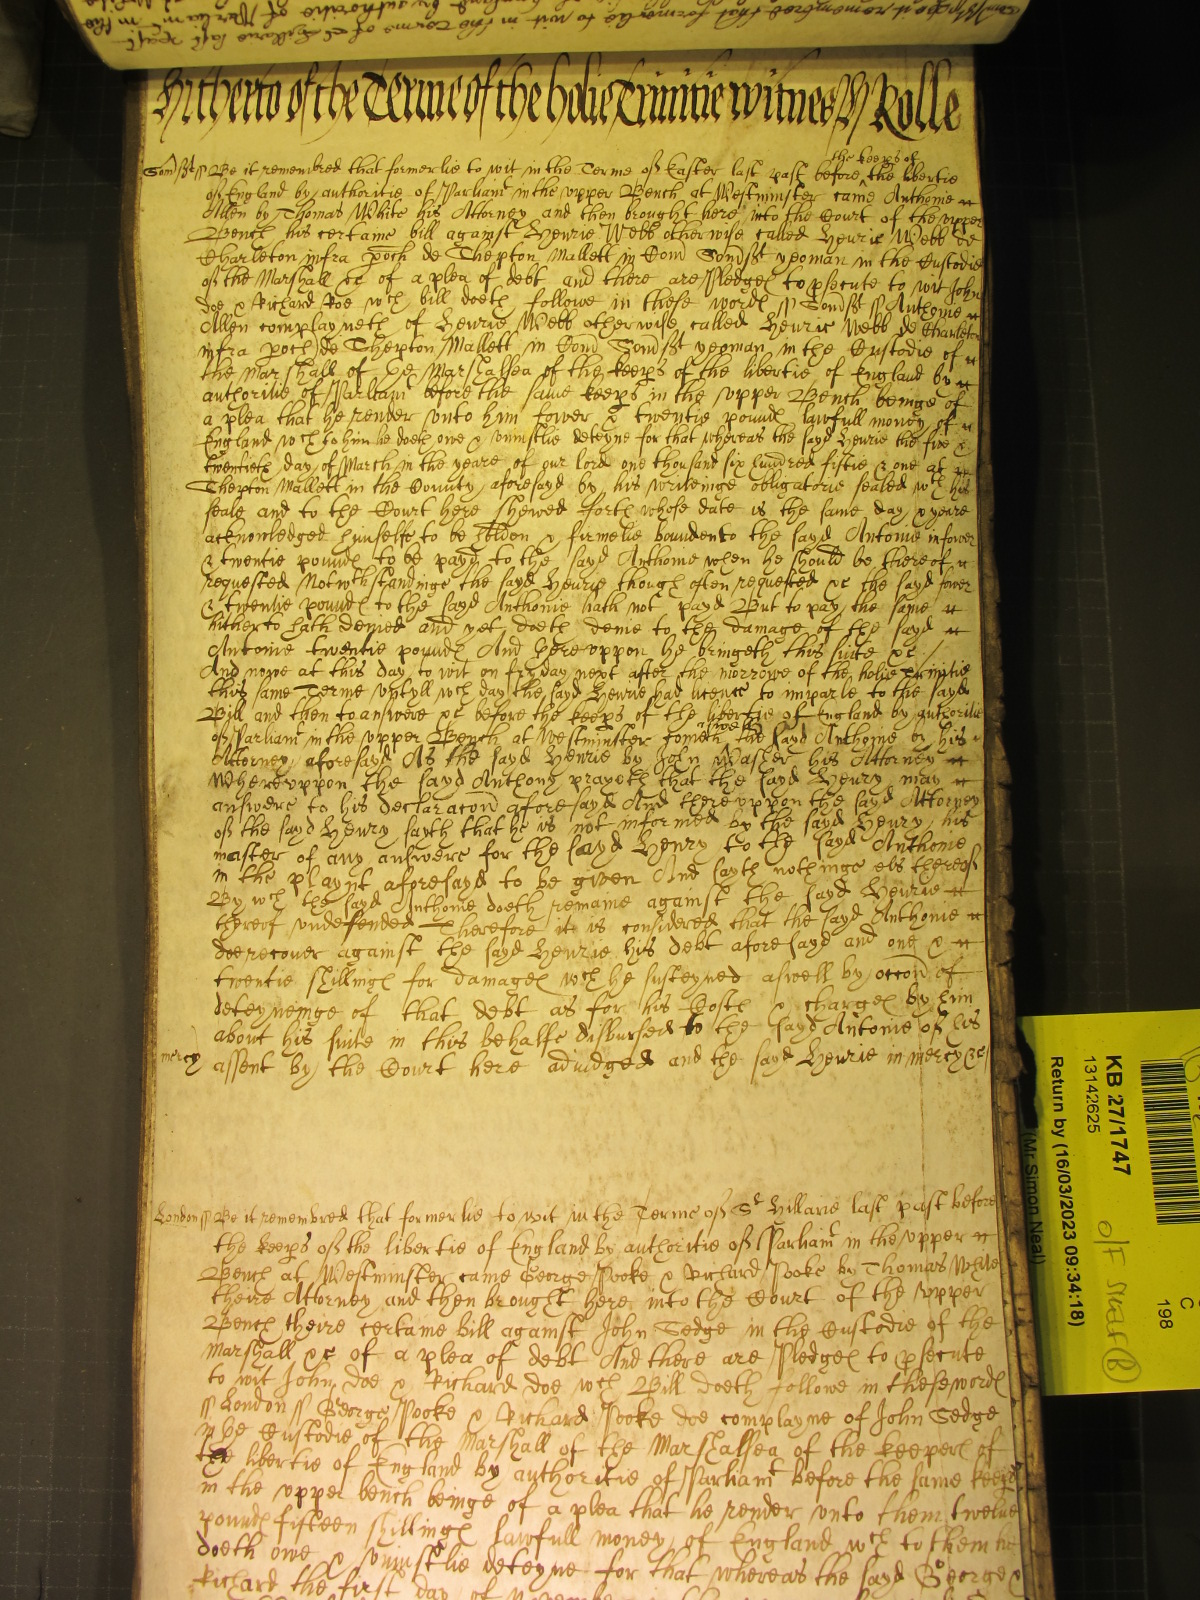 Hitherto of the Terme of the holie Trinitie witnes H Rolle
Somst ss Be it remembred that formerlie to wit in the Terme of Easter last past before ^the keeps of^ the libertie
of England by authoritie of Parliamt in the vpper Bench at Westminster came Anthonie
Allen by Thomas White his Attorney and then brought here into the Court of the vpper
Bench his certaine bill against Henrie Webb otherwise called Henrie Webb de
Charleton infra poch de Shepton Mallett in Com Somst yeoman in the Custodie
of the Marshall &c of a plea of debt and there are Pledges to psecute to wit John
doe & Richard Roe wch bill doeth followe in these words ss Somst ss Anthonie
Allen complayneth of Henrie Webb otherwise called Henrie Webb de Charleton
infra poch de Shepton Mallett in Com Somst yeoman in the Custodie of
the Marshall of the Marshalsea of the keeps of the libertie of England by
authoritie of Parliamt before the same keeps in the vpper Bench beinge of
a plea that he render vnto him fower & twentie pounds lawfull money of
England wch to him he doeth owe & vniustlie deteyne for that whereas the sayd Henrie the five &
twentieth day of March in the yeare of our lord one thousand six hundred fiftie & one at
Shepton Mallett in the County aforesayd by his writeinge obligatorie sealed wth his
seale and to the Court here shewed forth whose date is the same day & yeare
acknowledged himselfe to be holden & firmelie bounden to the sayd Antonie in fower
& twentie pounds to be payd to the sayd Anthonie when he should be thereof
requested Notwthstandinge the sayd Henrie though often requested &c the sayd fower
& twentie pounds to the sayd Anthonie hath not payd But to pay the same
hitherto hath denied and yet doeth denie to the damage of the sayd
Antonie twentie pounds And hereuppon he bringeth this suite &c
And nowe at this day to wit on fryday next after the morrowe of the holie Trinitie
this same Terme vntyll wch day the sayd Henrie had licence to imparle to the sayd
Bill and then to answere &c before the keeps of the libertie of England by authoritie
of Parliamt in the vpper Bench at Westminster cometh ^aswell^ the sayd Anthonie by his
Attorney aforesayd As the sayd Henrie by John Washer his Attorney
Whereuppon the sayd Anthony prayeth that the sayd Henry may
answere to his declaracon aforesayd And thereuppon the sayd Attorney
of the sayd Henry sayth that he is not informed by the sayd Henry his
master of any answere for the sayd Henry to the sayd Anthonie
in the playnt aforesayd to be given And sayth nothinge els thereof
By wch the sayd Anthonie doeth remaine against the sayd Henrie
thereof vndefended Therefore it is considered that the sayd Anthonie
doe recover against the sayd Henrie his debt aforesayd and one &
twentie shillings for damages wch he susteyned aswell by occon of
deteyneinge of that debt as for his Costs & charges by him
about his suite in this behalfe disbursed to the sayd Antonie of his
mercy assent by the Court here adiudged and the sayd Henrie in mercy &c
London ss Be it remembred that formerlie to wit in the Terme of St Hillarie last past before
the keeps of the libertie of England by authoritie of Parliamt in the vpper
Bench at Westminster came George Pooke & Richard Pooke by Thomas White
theire Attorney and then brought here into the Court of the vpper
Bench theire certaine bill against John Sedge in the Custodie of the
Marshall &c of a plea of debt And there are Pledges to psecute
to wit John doe & Richard doe wch Bill doeth followe in these words
ss London ss George Pooke & Richard Pooke doe complayne of John Sedge
in the Custodie of the Marshall of the Marshalsea of the keepers of
the libertie of England by authoritie of Parliamt before the same keeps
in the vpper bench beinge of a plea that he render vnto them twelve
pounds fifteen shillings lawfull money of England wch to them he
doeth owe & vniustlie deteyne for that whereas the sayd George &
Richard the first day of
KB 27/1747
13142625
Return by (16/03/2023 09:34:18)
(Mr Simon Neal)
C
198